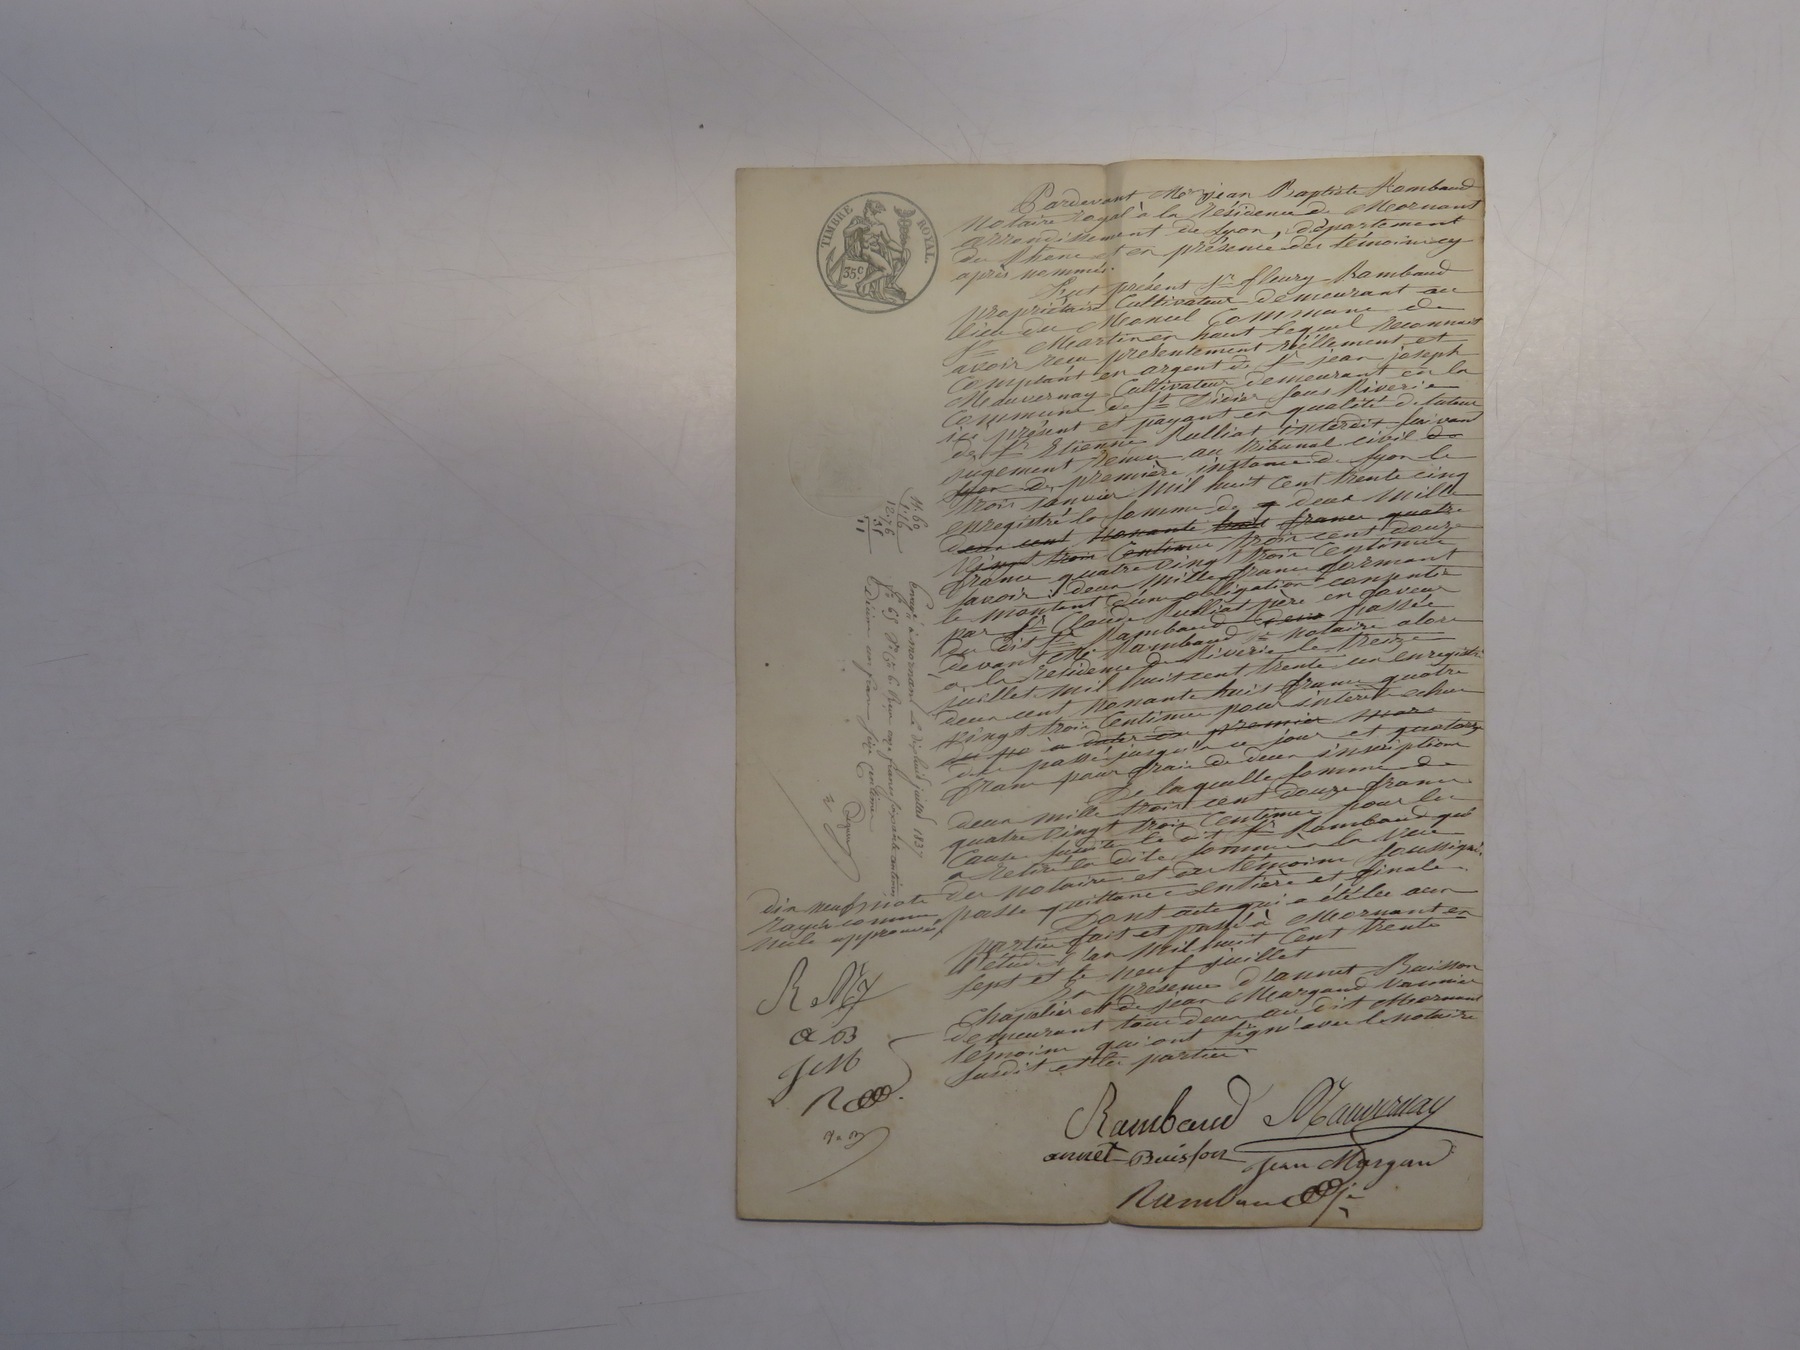 TIMBRE ROYAL
35 c
Pardevant Me jean Baptiste Rambaud
Notaire royal à la résidence de Mornant
arrondissement de Lyon, département
du Rhône et en présence des témoins cy
après nommés.
fut présent Sr fleury Rambaud
propriétaire Cultivateur demeurant au
lieu du Moncel Commune de
St Martin en haut lequel reconnait
avoir reçu présentement réellement et
Comptant en argent de Sr jean joseph
Mauvernay Cultivateur demeurant en la
Commune de St Didier sous Riverie
ici présent et payant en qualité de tuteur
de Sr Etienne Rulliat interdit suivant
jugement rendu au tribunal civil de
Lyon de première instance de Lyon le
trois janvier mil huit cent trente cinq
enregistré la somme de deux mille
deux cent nonante huit francs quatre
vingt trois Centimes trois cent douze
francs quatre vingt trois Centimes
savoir : deux mille francs formant
le montant d'une obligation consentie
par Sr Claude Rulliat père en faveur
du dit Sr Rambaud passée
devant Me Rambaud notaire alors
à la Résidence de Riverie le treize
juillet mil huit cent trente un enregistré
deux cent nonante huit francs quatre
vingt trois Centimes pour intérêts echus
à dater du premier mars
passé jusqu'à ce jour et quatorze
francs pour frais de deux inscriptions
De laquelle somme de
deux mille trois cent douze francs
quatre vingt trois Centimes pour les
Causes susdites le dit Sr Rambaud qui
a retiré la dite somme a la Vue
du notaire et des témoins soussignés
passe quittance entière et finale.
Dont acte qui a été lu aux
parties fait et passé à Mornant en
l'étude l'an mil huit Cent trente
sept et le neuf juillet
En présence d'annet Buisson
Chapelier et de jean Margand Vannier
demeurant tous deux au dit Mornant
témoins qui ont signé avec le notaire
susdit et les parties
Rambaud Mauvernay
annet Buisson jean Margand
Rambaud
dix neuf mots
rayés comme
nuls approuvés
R My
a B
J M
R
11.60
1.16
12.76
Enregé à mornant le dix huit juillet 1837
Décime un franc seize centimes